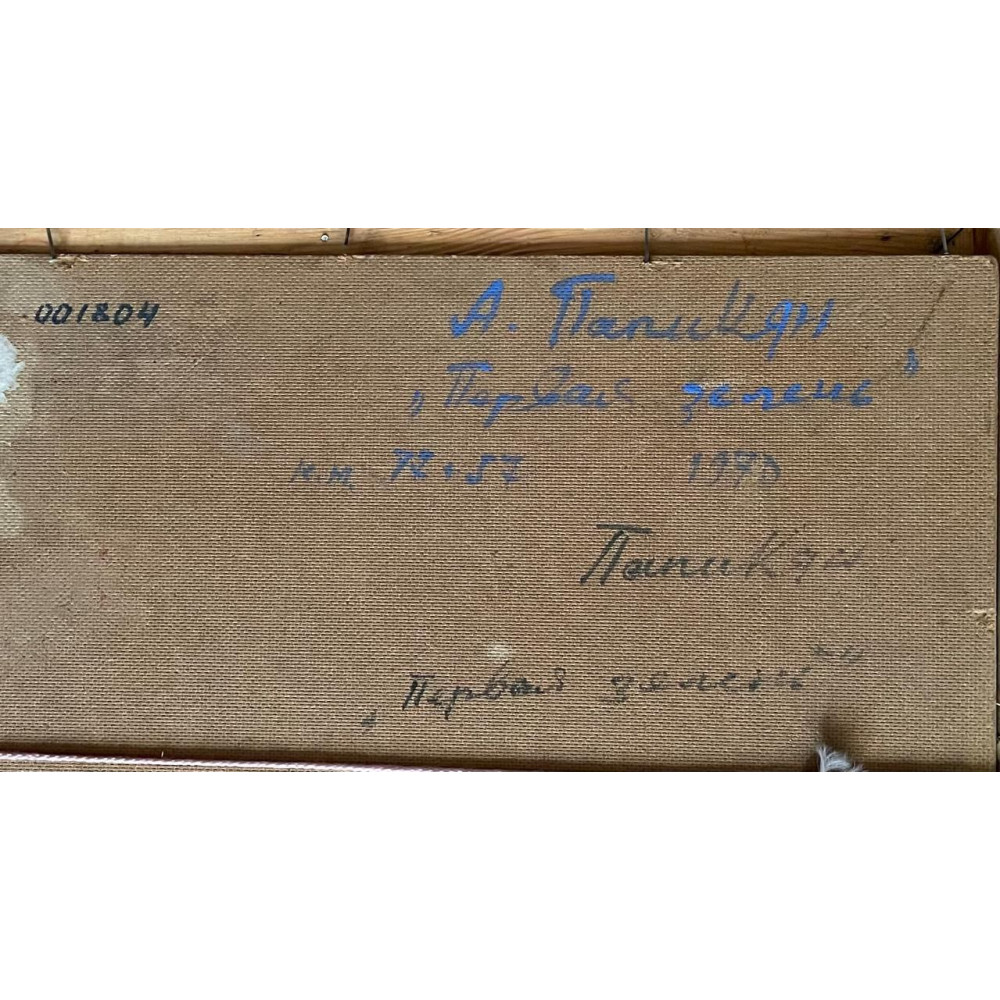 001804
А. Папикян
„Первая зелень"
к.м. 72+57 1970
Папикян
„Первая зелень"